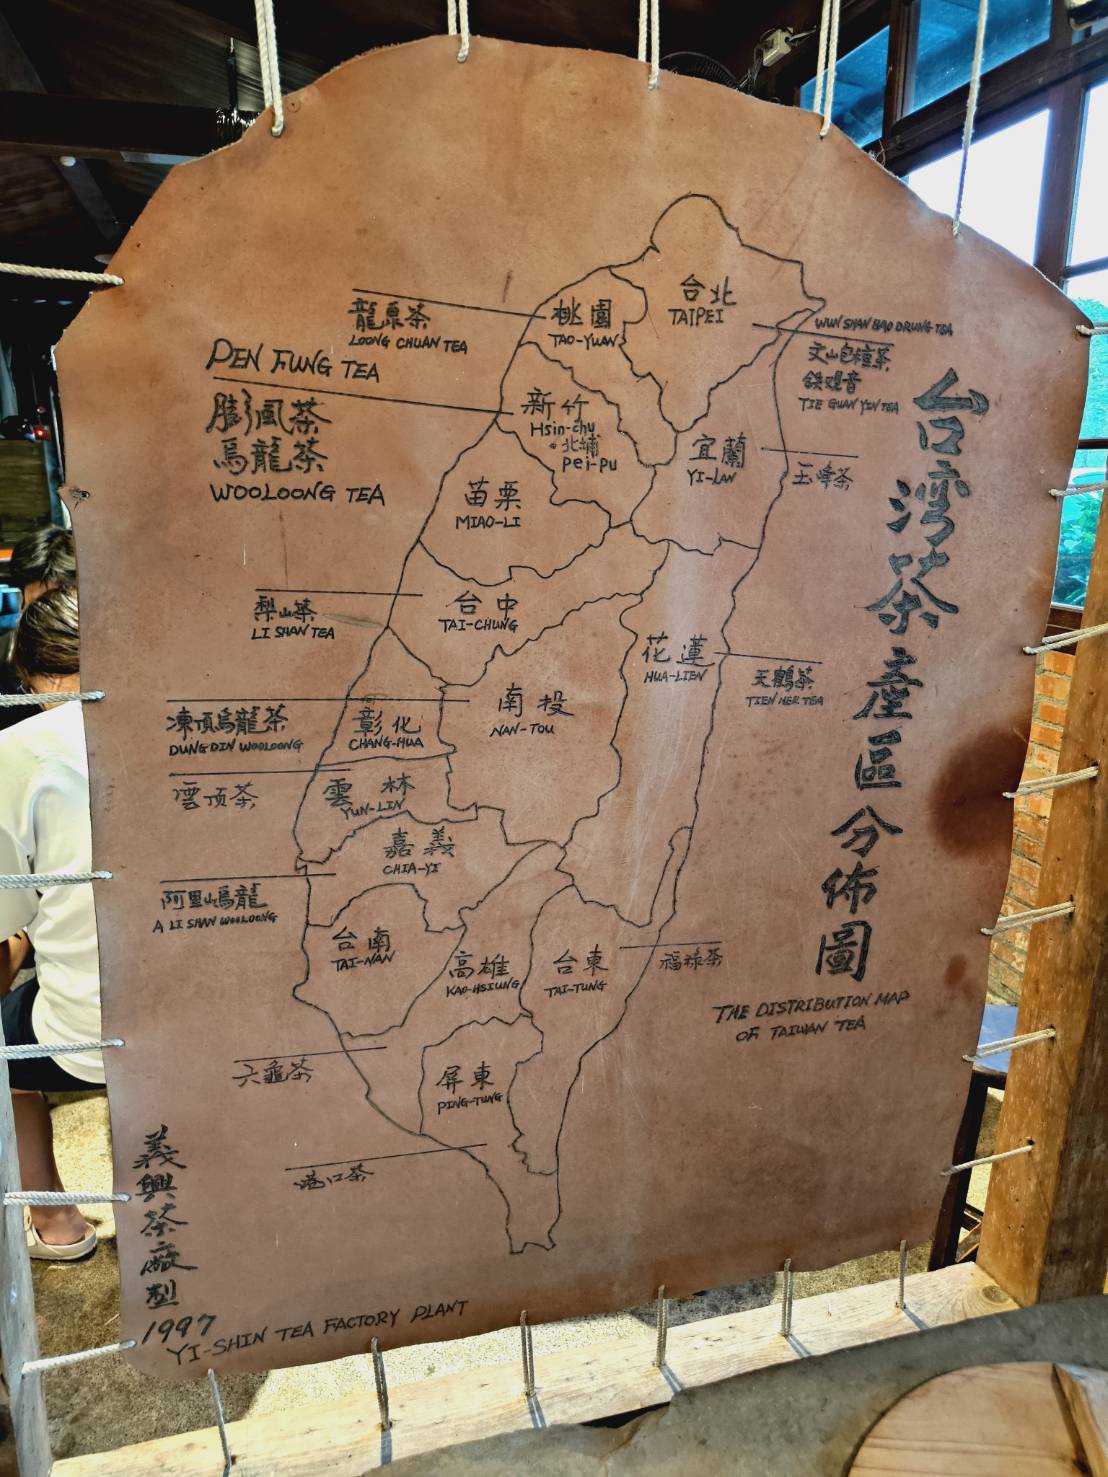 台灣茶產區分佈圖
THE DISTRIBUTION MAP
OF TAIWAN TEA
台北
TAIPEI
桃園
TAO-YUAN
龍泉茶
LOONG CHUAN TEA
WUN SHAN BAO DRUNG TEA
文山包種茶
鉄观音
TIE GUAN YIN TEA
PEN FUNG TEA
膨風茶
烏龍茶
WOOLOONG TEA
新竹
Hsin-chu
北埔
Pei-Pu
宜蘭
YI-LAN
玉峰茶
苗栗
MIAO-LI
梨山茶
LI SHAN TEA
台中
TAI-CHUNG
花蓮
HUA-LIEN
天鶴茶
TIEN HER TEA
南投
NAN-TOU
凍頂烏龍茶
DUNG DIN WOOLOONG
彰化
CHANG-HUA
雲頂茶
雲林
YUN-LIN
嘉義
CHIA-YI
阿里山烏龍
A LI SHAN WOOLOONG
台南
TAI-NAN
高雄
KAO-HSIUNG
台東
TAI-TUNG
福祿茶
六龜茶
屏東
PING-TUNG
港口茶
義興茶廠型
1997
YI-SHIN TEA FACTORY PLANT